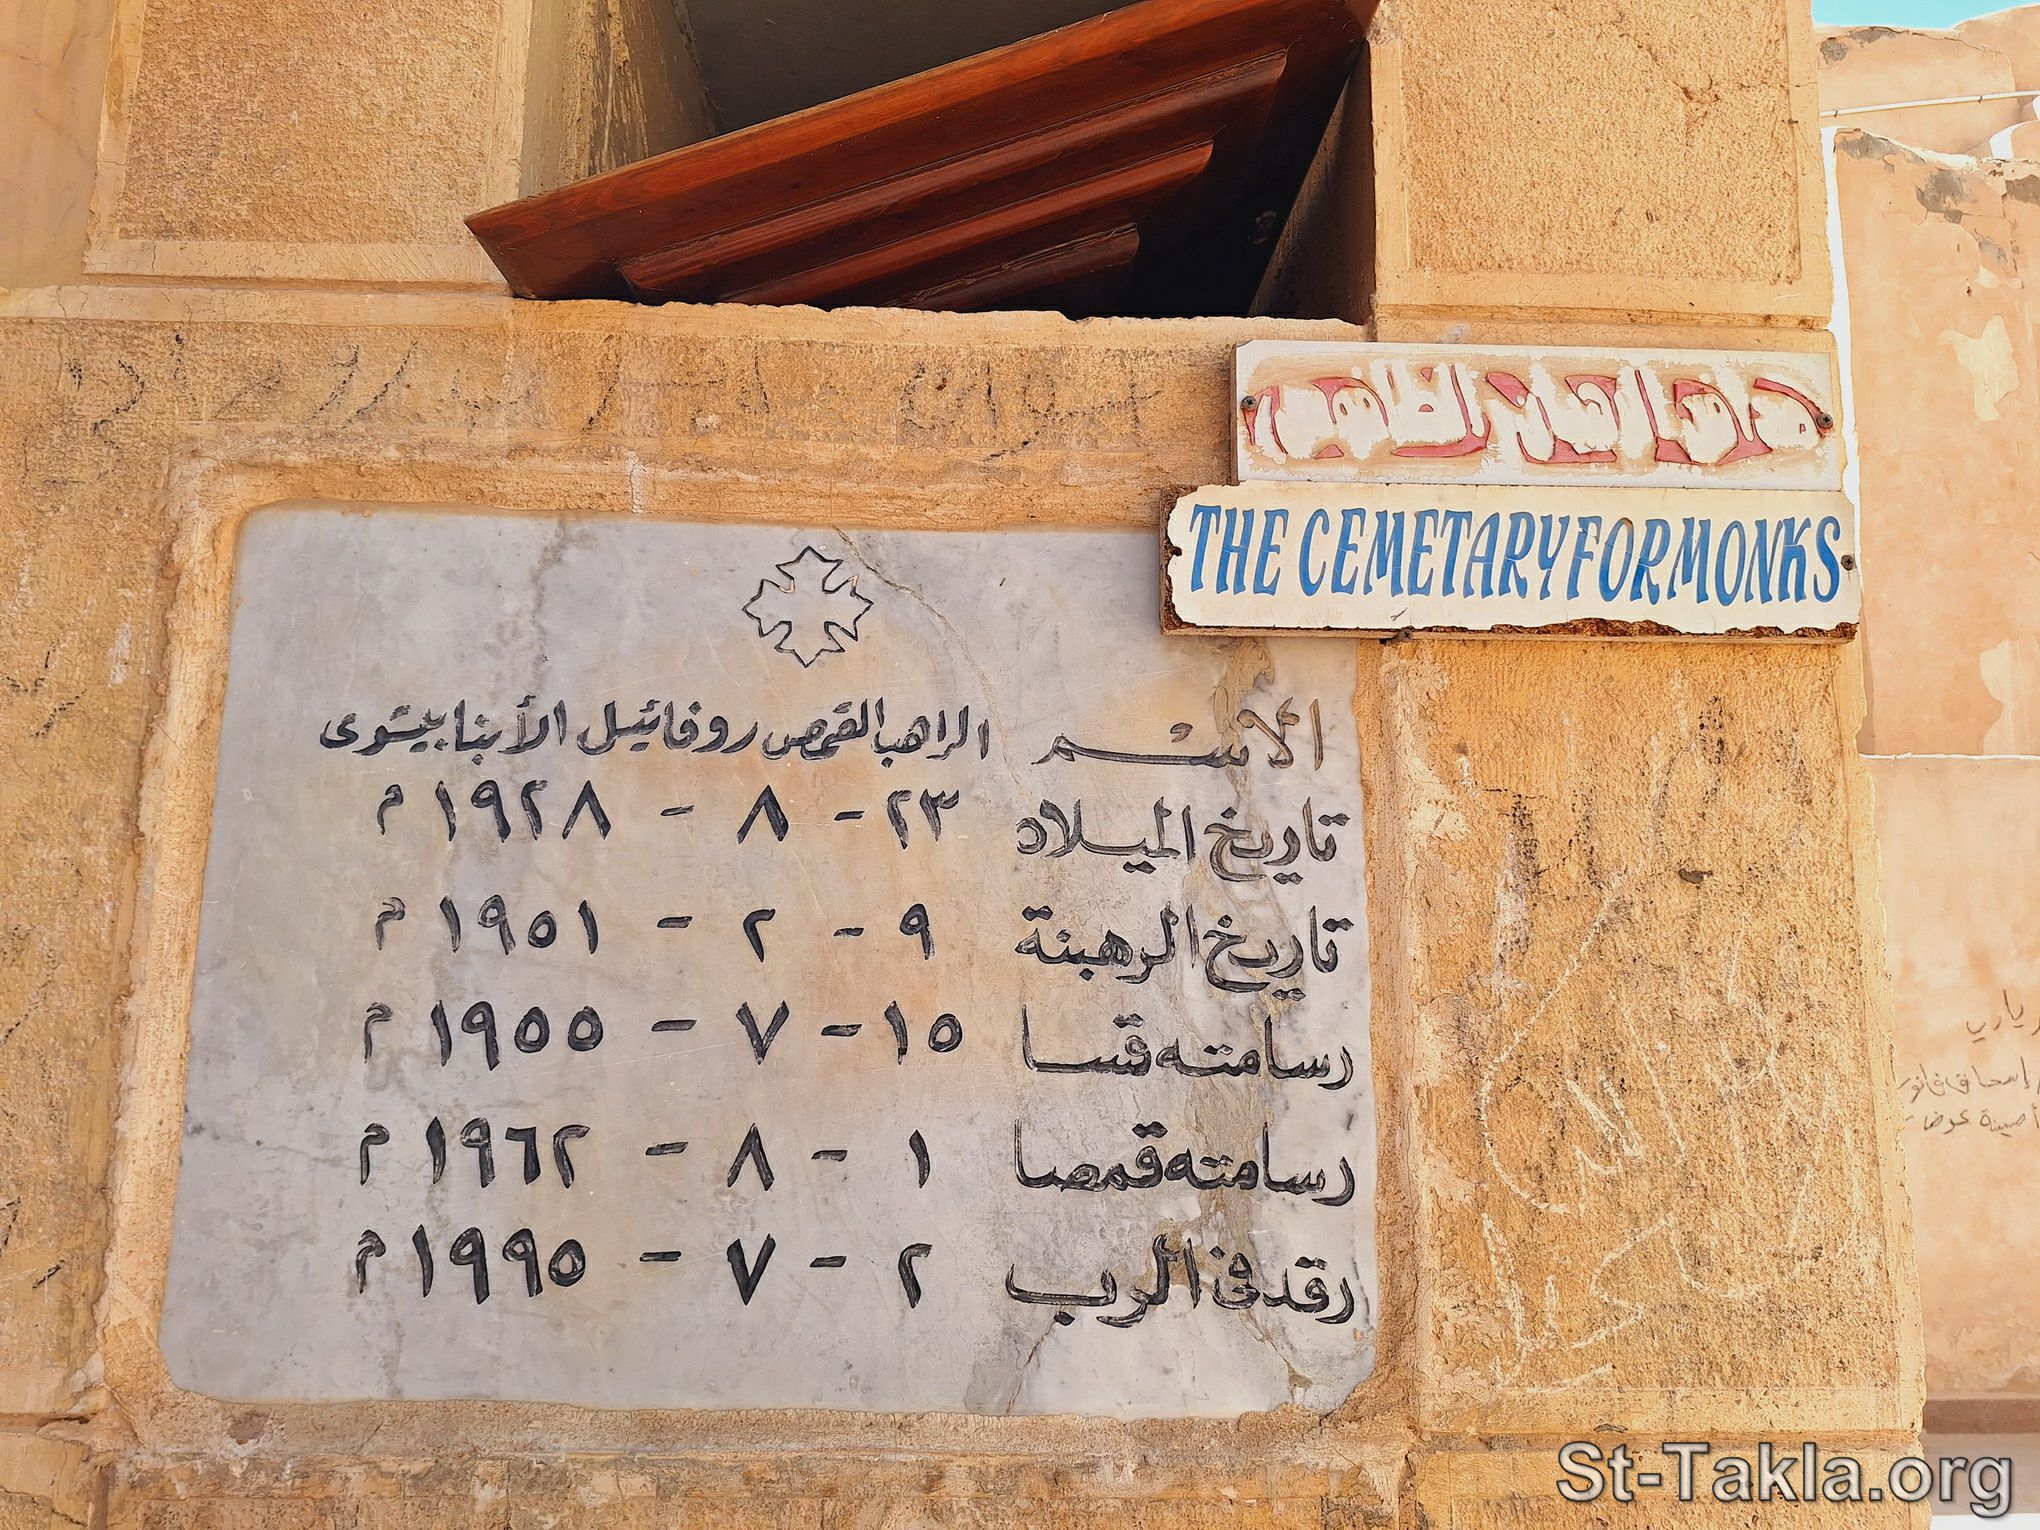 THE CEMETARY FOR MONKS
الاسم الراهب القمص روفائيل الأنبا بيشوى
تاريخ الميلاد ٢٣ - ٨ - ١٩٢٨ م
تاريخ الرهبنة ٩ - ٢ - ١٩٥١ م
رسامته قسا ١٥ - ٧ - ١٩٥٥ م
رسامته قمصا ١ - ٨ - ١٩٦٢ م
رقد فى الرب ٢ - ٧ - ١٩٩٥ م
يارب
St-Takla.org